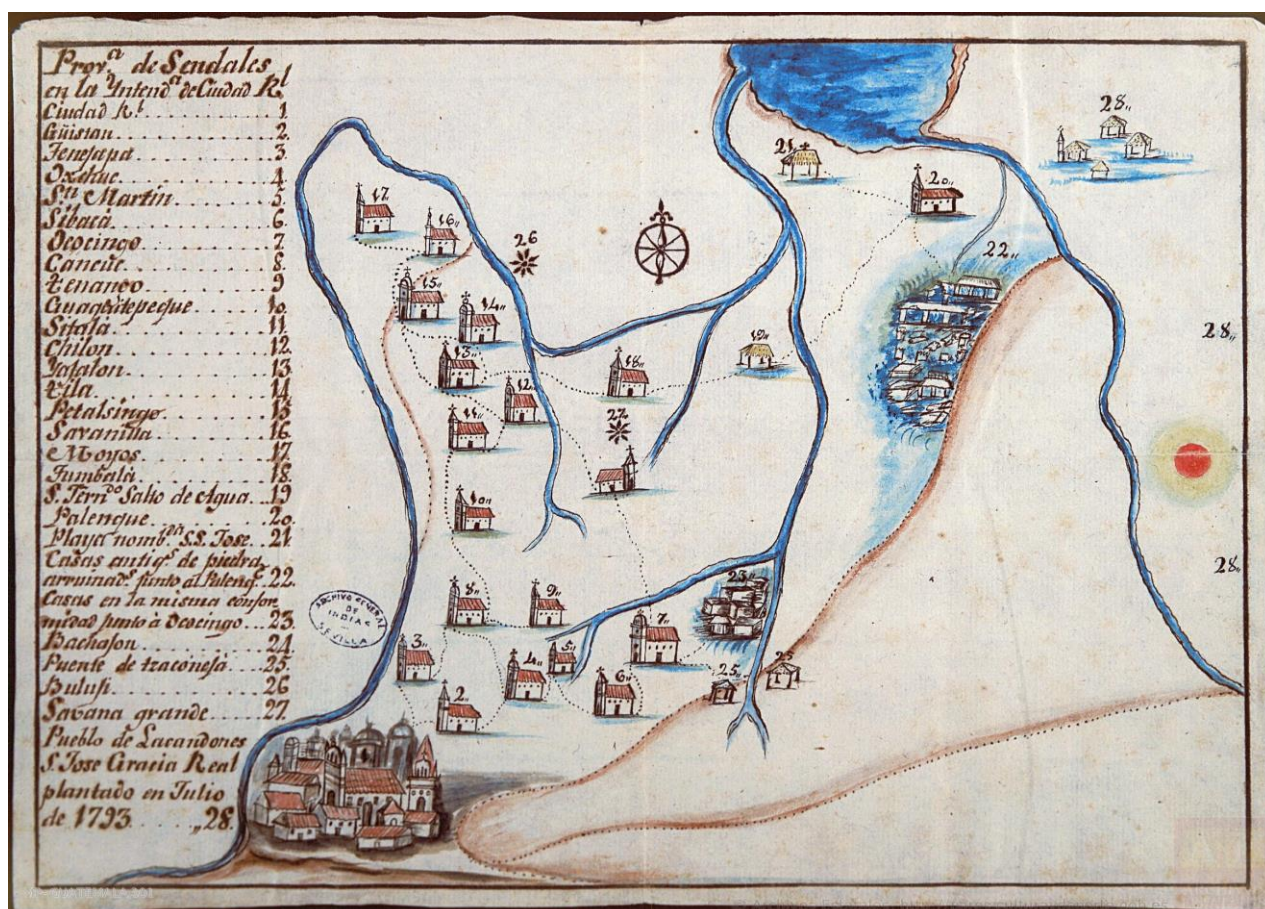 Prov.ª de Sendales
en la Yntend.ª de Ciudad R.l
Ciudad R.l 1
Güistan 2
Tenejapa 3
Oxchuc 4
S.n Martin 5
Sibacà 6
Ococingo 7
Cancuc 8
Tenango 9
Guaquitepeque 10
Sitala 11
Chilon 12
Yajalon 13
Tila 14
Petalsingo 15
Savanilla 16
Moyos 17
Tumbalà 18
S. Fern.do Salto de Agua 19
Palenque 20
S.S. Jose 21
Casas antig.s de piedra
arruinad.s junto al Palenq.e 22
Casas en la misma confor
midad junto à Ococingo 23
Bachajon 24
Puente de tzaconejà 25
Bulují 26
Savana grande 27
Pueblo de Lacandones
S. Jose Gracia Real
plantado en Julio
de 1793 28
28
21
20
17
16
26
22
15
14
28
19
13
18
12
27
11
10
28
23
8
9
7
3
5
4
6
25
2
ARCHIVO GENERAL
DE
INDIAS
SEVILLA